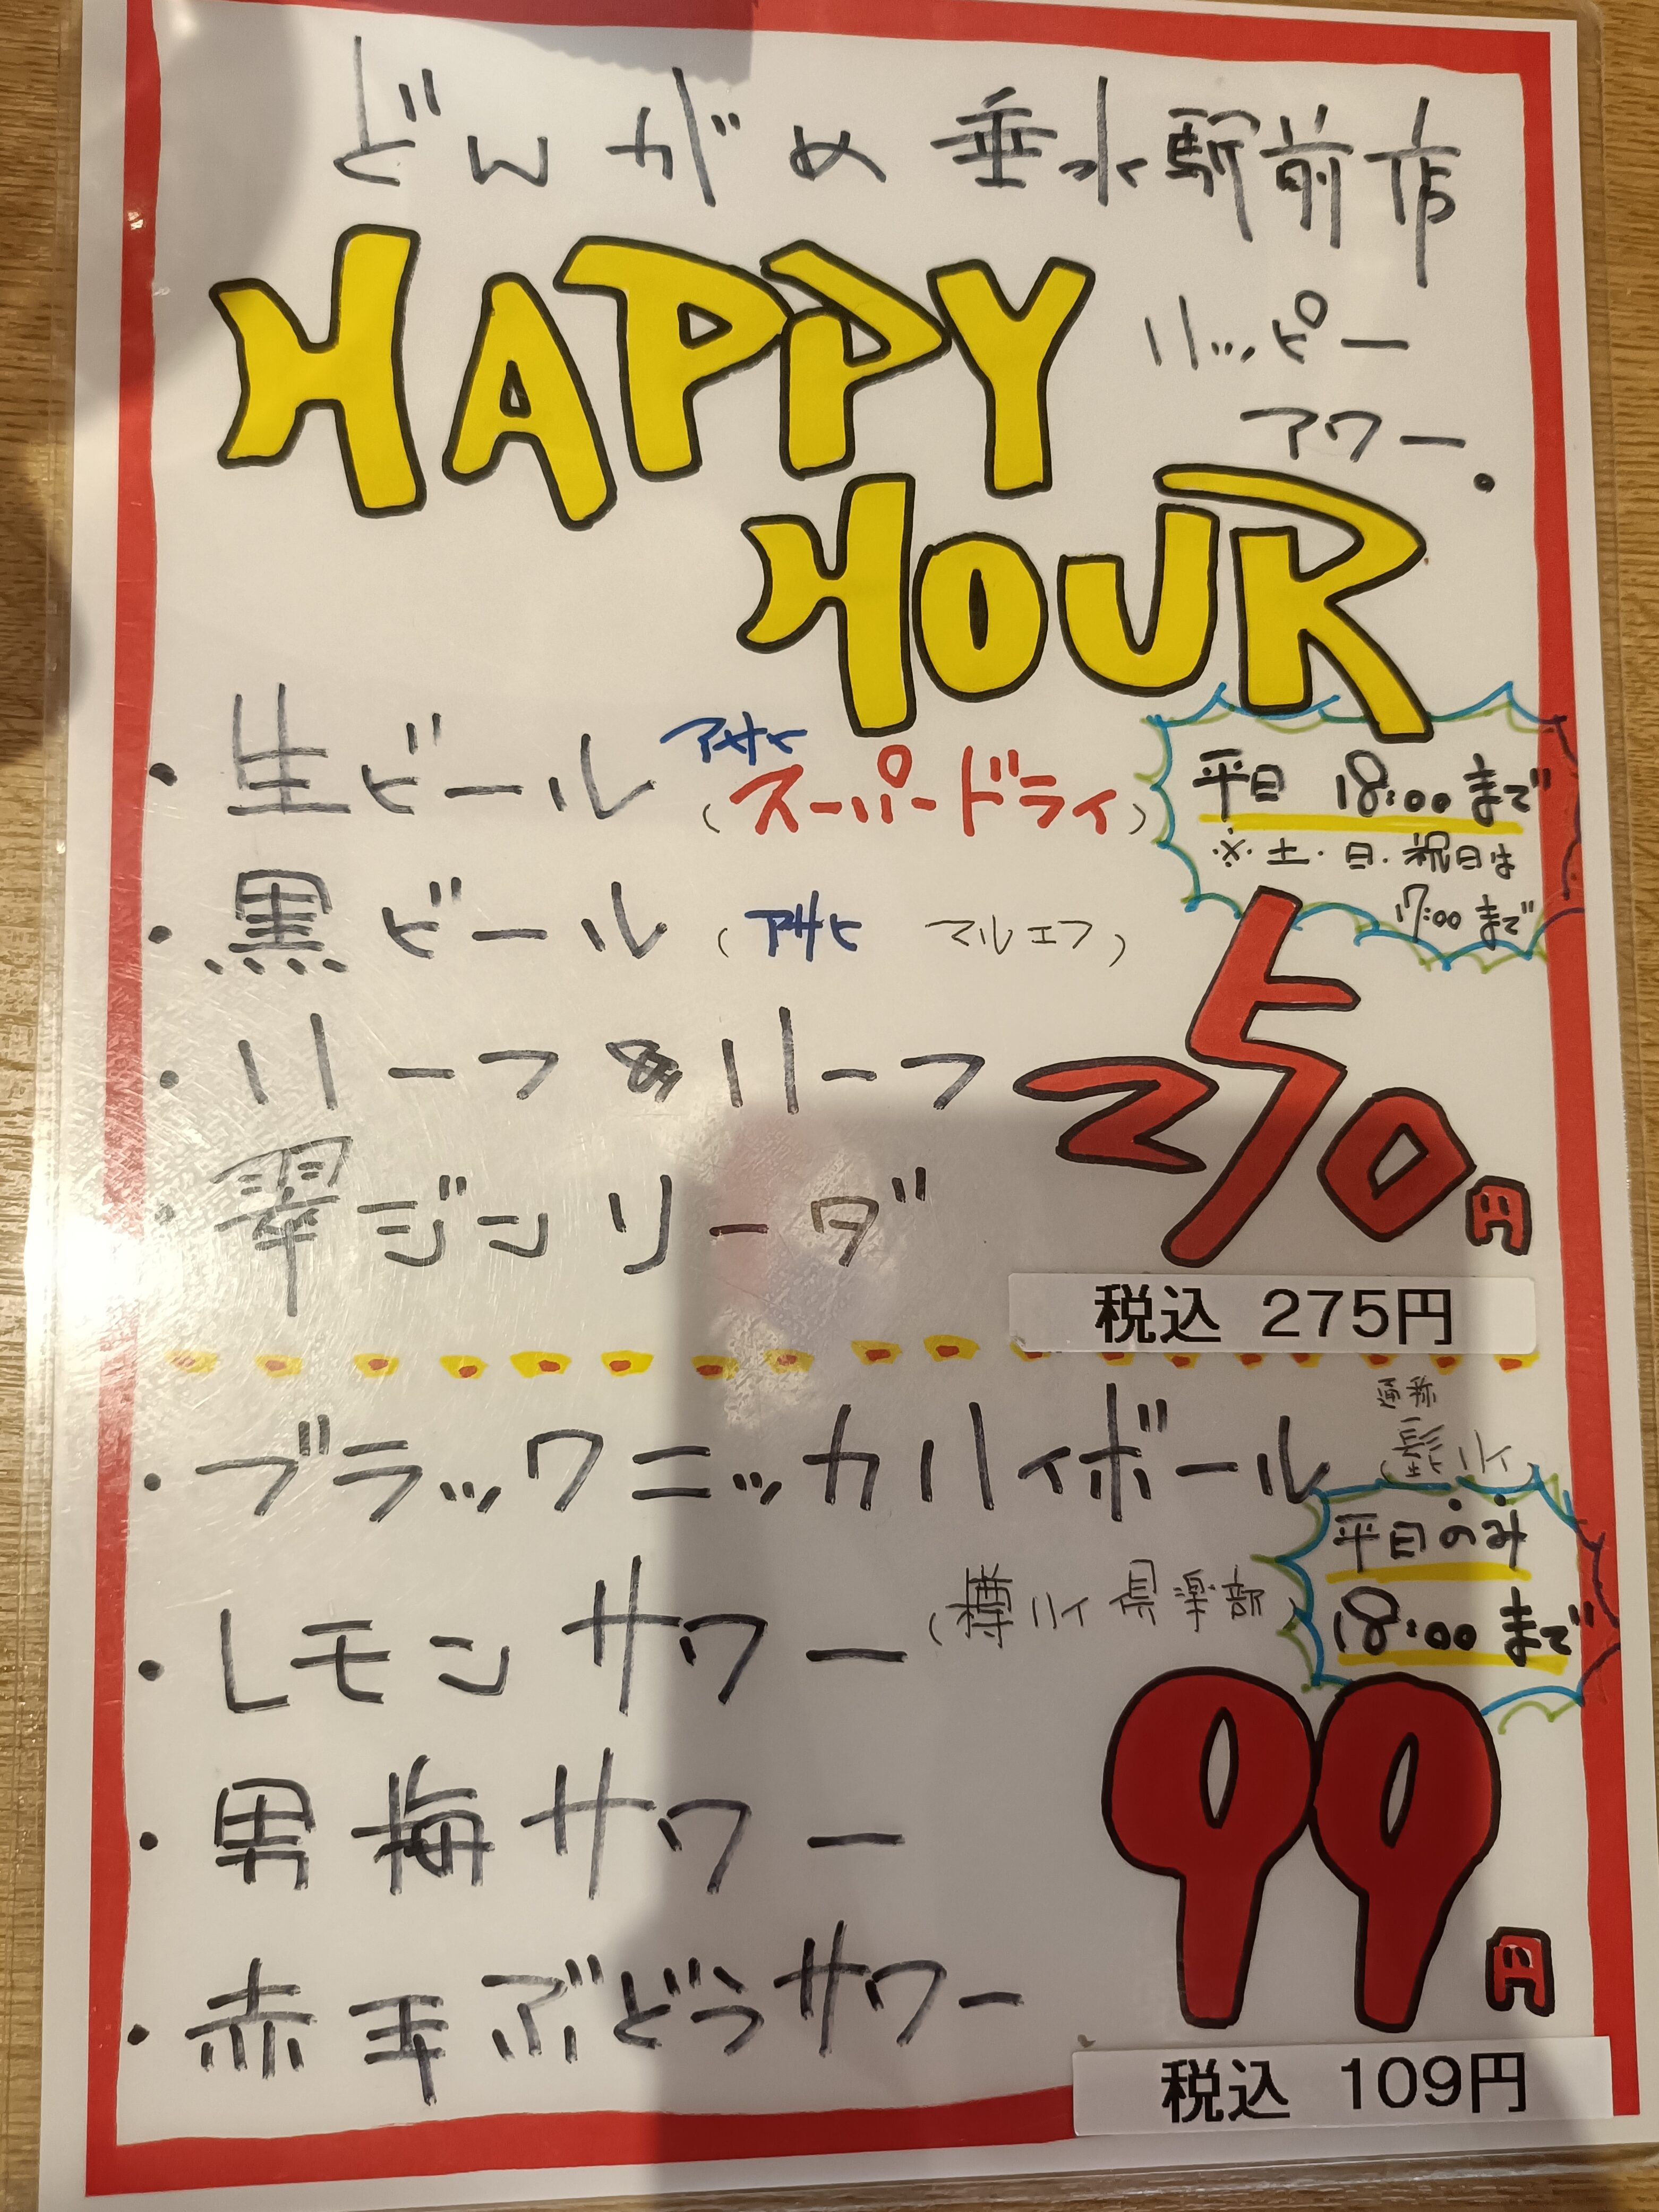 どんがめ 垂水駅前店
HAPPY
ハッピー
アワー。
HOUR
・生ビール (アサヒ スーパードライ)
平日 18:00まで
※土・日・祝日は
17:00まで
・黒ビール (アサヒ マルエフ)
・ハーフ&ハーフ
・翠ジンソーダ
250円
税込 275円
・ブラックニッカハイボール
通称
(髭ハイ)
平日のみ
18:00まで
・レモンサワー (樽ハイ倶楽部)
・男梅サワー
・赤玉ぶどうサワー
99円
税込 109円